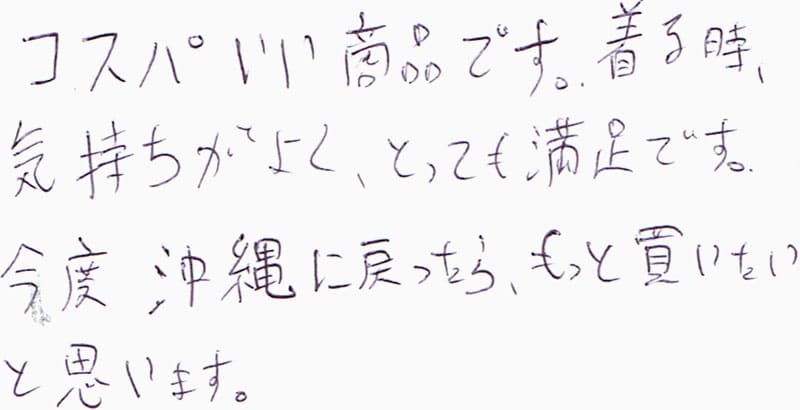 コスパいい商品です。着る時、
気持ちがよく、とっても満足です。
今度 沖縄に戻ったら、もっと買いたい
と思います。